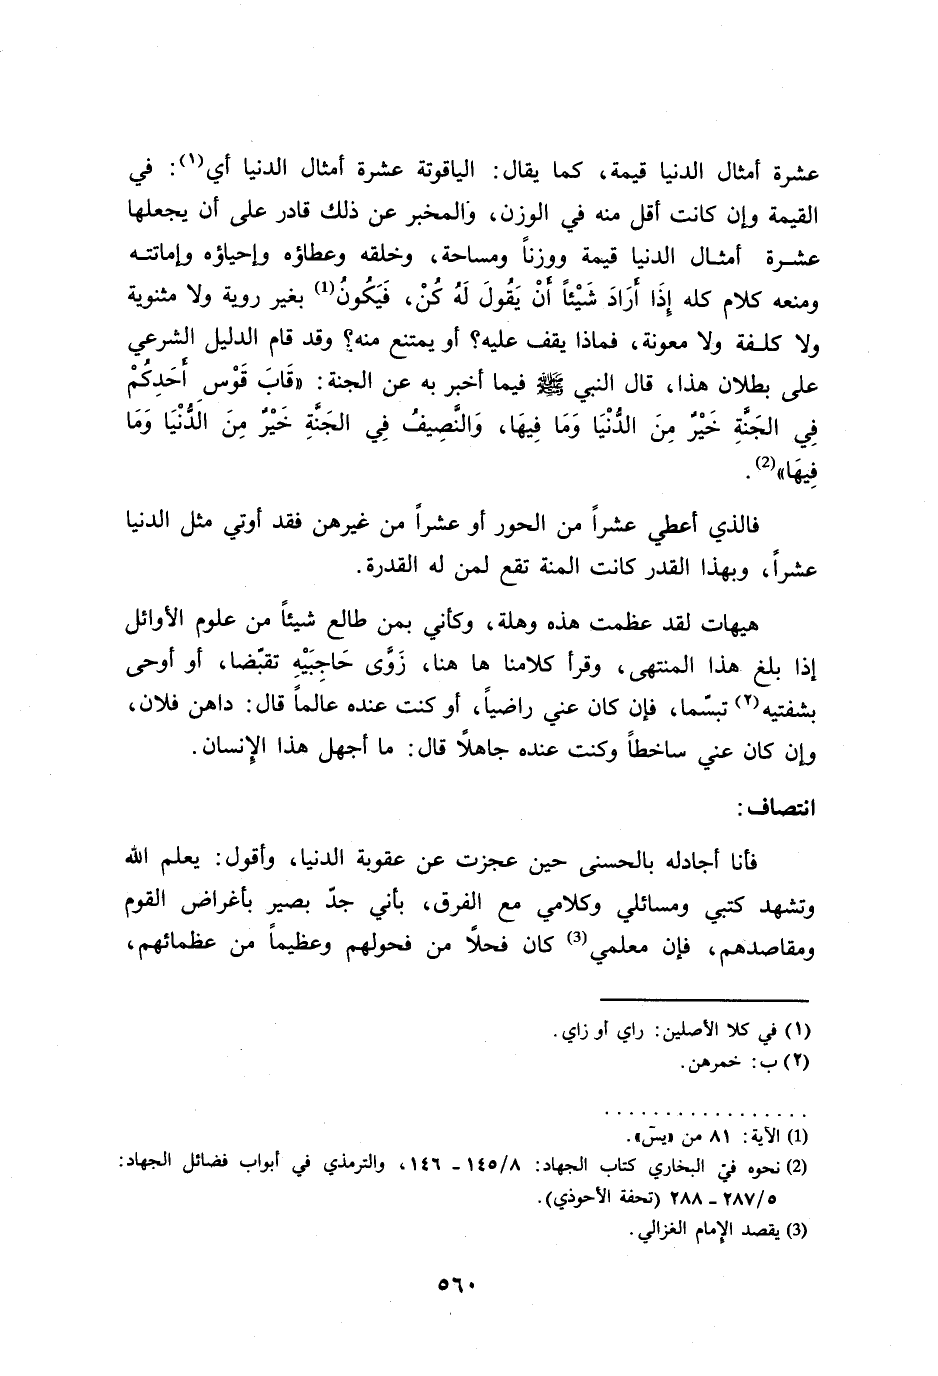 عشرة أمثال الدنيا قيمة، كما يقال: الياقوتة عشرة أمثال الدنيا أي(١): في
القيمة وإن كانت أقل منه في الوزن، والمخبر عن ذلك قادر على أن يجعلها
عشرة أمثال الدنيا قيمة ووزناً ومساحة، وخلقه وعطاؤه وإحياؤه وإماتته
ومنعه كلام كله إِذَا أَرَادَ شَيْئاً أَنْ يَقُولَ لَهُ كُنْ، فَيَكُونُ(1) بغير روية ولا مثنوية
ولا كلفة ولا معونة، فماذا يقف عليه؟ أو يمتنع منه؟ وقد قام الدليل الشرعي
على بطلان هذا، قال النبي ﷺ فيما أخبر به عن الجنة: «قَابَ قَوْسِ أَحَدِكُمْ
فِي الجَنَّةِ خَيْرٌ مِنَ الدُّنْيَا وَمَا فِيهَا، وَالنَّصِيفُ فِي الجَنَّةِ خَيْرٌ مِنَ الدُّنْيَا وَمَا
فِيهَا»(2).
فالذي أعطي عشراً من الحور أو عشراً من غيرهن فقد أوتي مثل الدنيا
عشراً، وبهذا القدر كانت المنة تقع لمن له القدرة.
هيهات لقد عظمت هذه وهلة، وكأني بمن طالع شيئاً من علوم الأوائل
إذا بلغ هذا المنتهى، وقرأ كلامنا ها هنا، زَوَّى حَاجِبَيْهِ تقبّضا، أو أوحى
بشفتيه(٢) تبسّما، فإن كان عني راضياً، أو كنت عنده عالماً قال: داهن فلان،
وإن كان عني ساخطاً وكنت عنده جاهلًا قال: ما أجهل هذا الإنسان.
انتصاف:
فأنا أجادله بالحسنى حين عجزت عن عقوبة الدنيا، وأقول: يعلم الله
وتشهد كتبي ومسائلي وكلامي مع الفرق، بأني جدّ بصير بأغراض القوم
ومقاصدهم، فإن معلمي(3) كان فحلًا من فحولهم وعظيماً من عظمائهم،
(١) في كلا الأصلين: راي أو زاي.
(٢) ب: خمرهن.
. . . . . . . . . . . . . . . . .
(1) الآية: ٨١ من «يسّ».
(2) نحوه في البخاري كتاب الجهاد: ٨/ ١٤٥ - ١٤٦، والترمذي في أبواب فضائل الجهاد:
٥/ ٢٨٧ - ٢٨٨ (تحفة الأحوذي).
(3) يقصد الإمام الغزالي.
٥٦٠